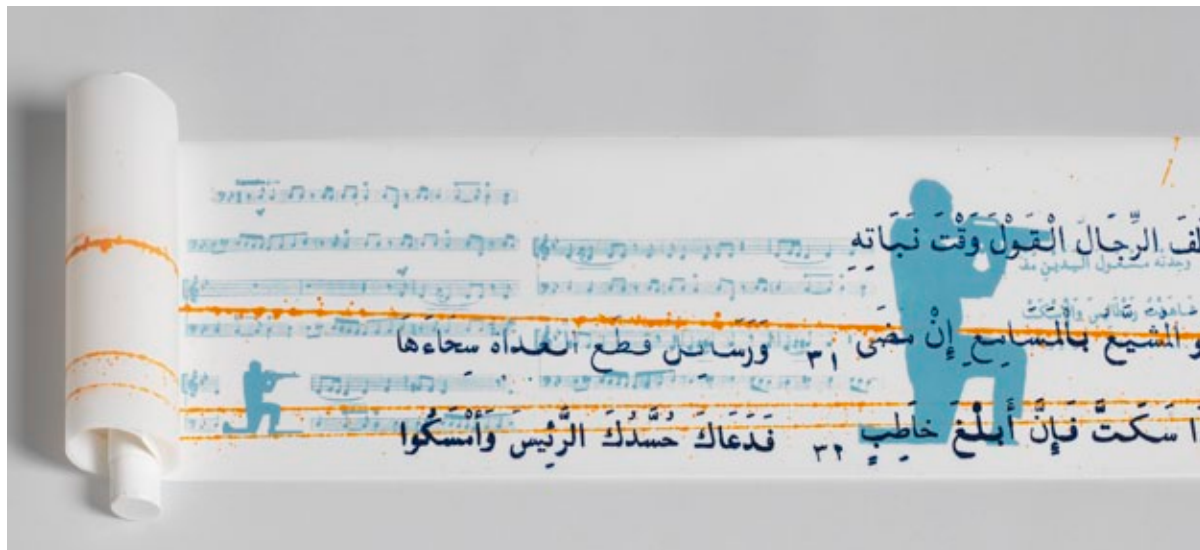 الرِّجَالَ الْقَوْلَ وَقْتَ نَبَاتِهِ
وجدته مشغول اليدين
و المشيع بالمسامع إِنْ مَضَى ٣١ وَرَسَائِل قطع العداة سِحَاءَهَا
ا سَكَتَّ فَإِنَّ أَبْلَغَ خَاطِبٍ ٣٢ فَدَعَاكَ حُسَّدُكَ الرَّئِيسَ وَأَمْسَكُوا